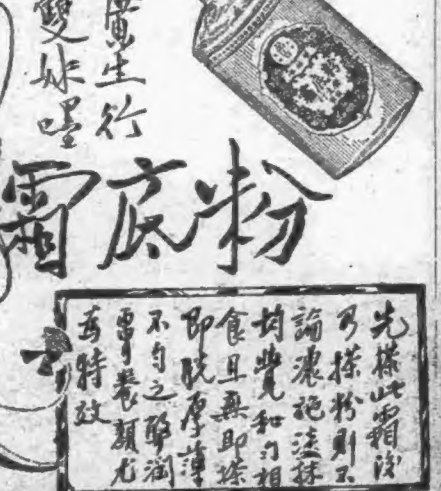 廣生行
雙妹嚜
粉底霜
先搽此霜後
乃搽粉則不
論濃施淡抹
均覺和勻相
食且無即搽
即脱厚薄
不勻之弊潤
膚養顏尤
爲特效